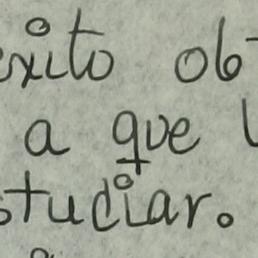 xito ob
a que
tudiar.